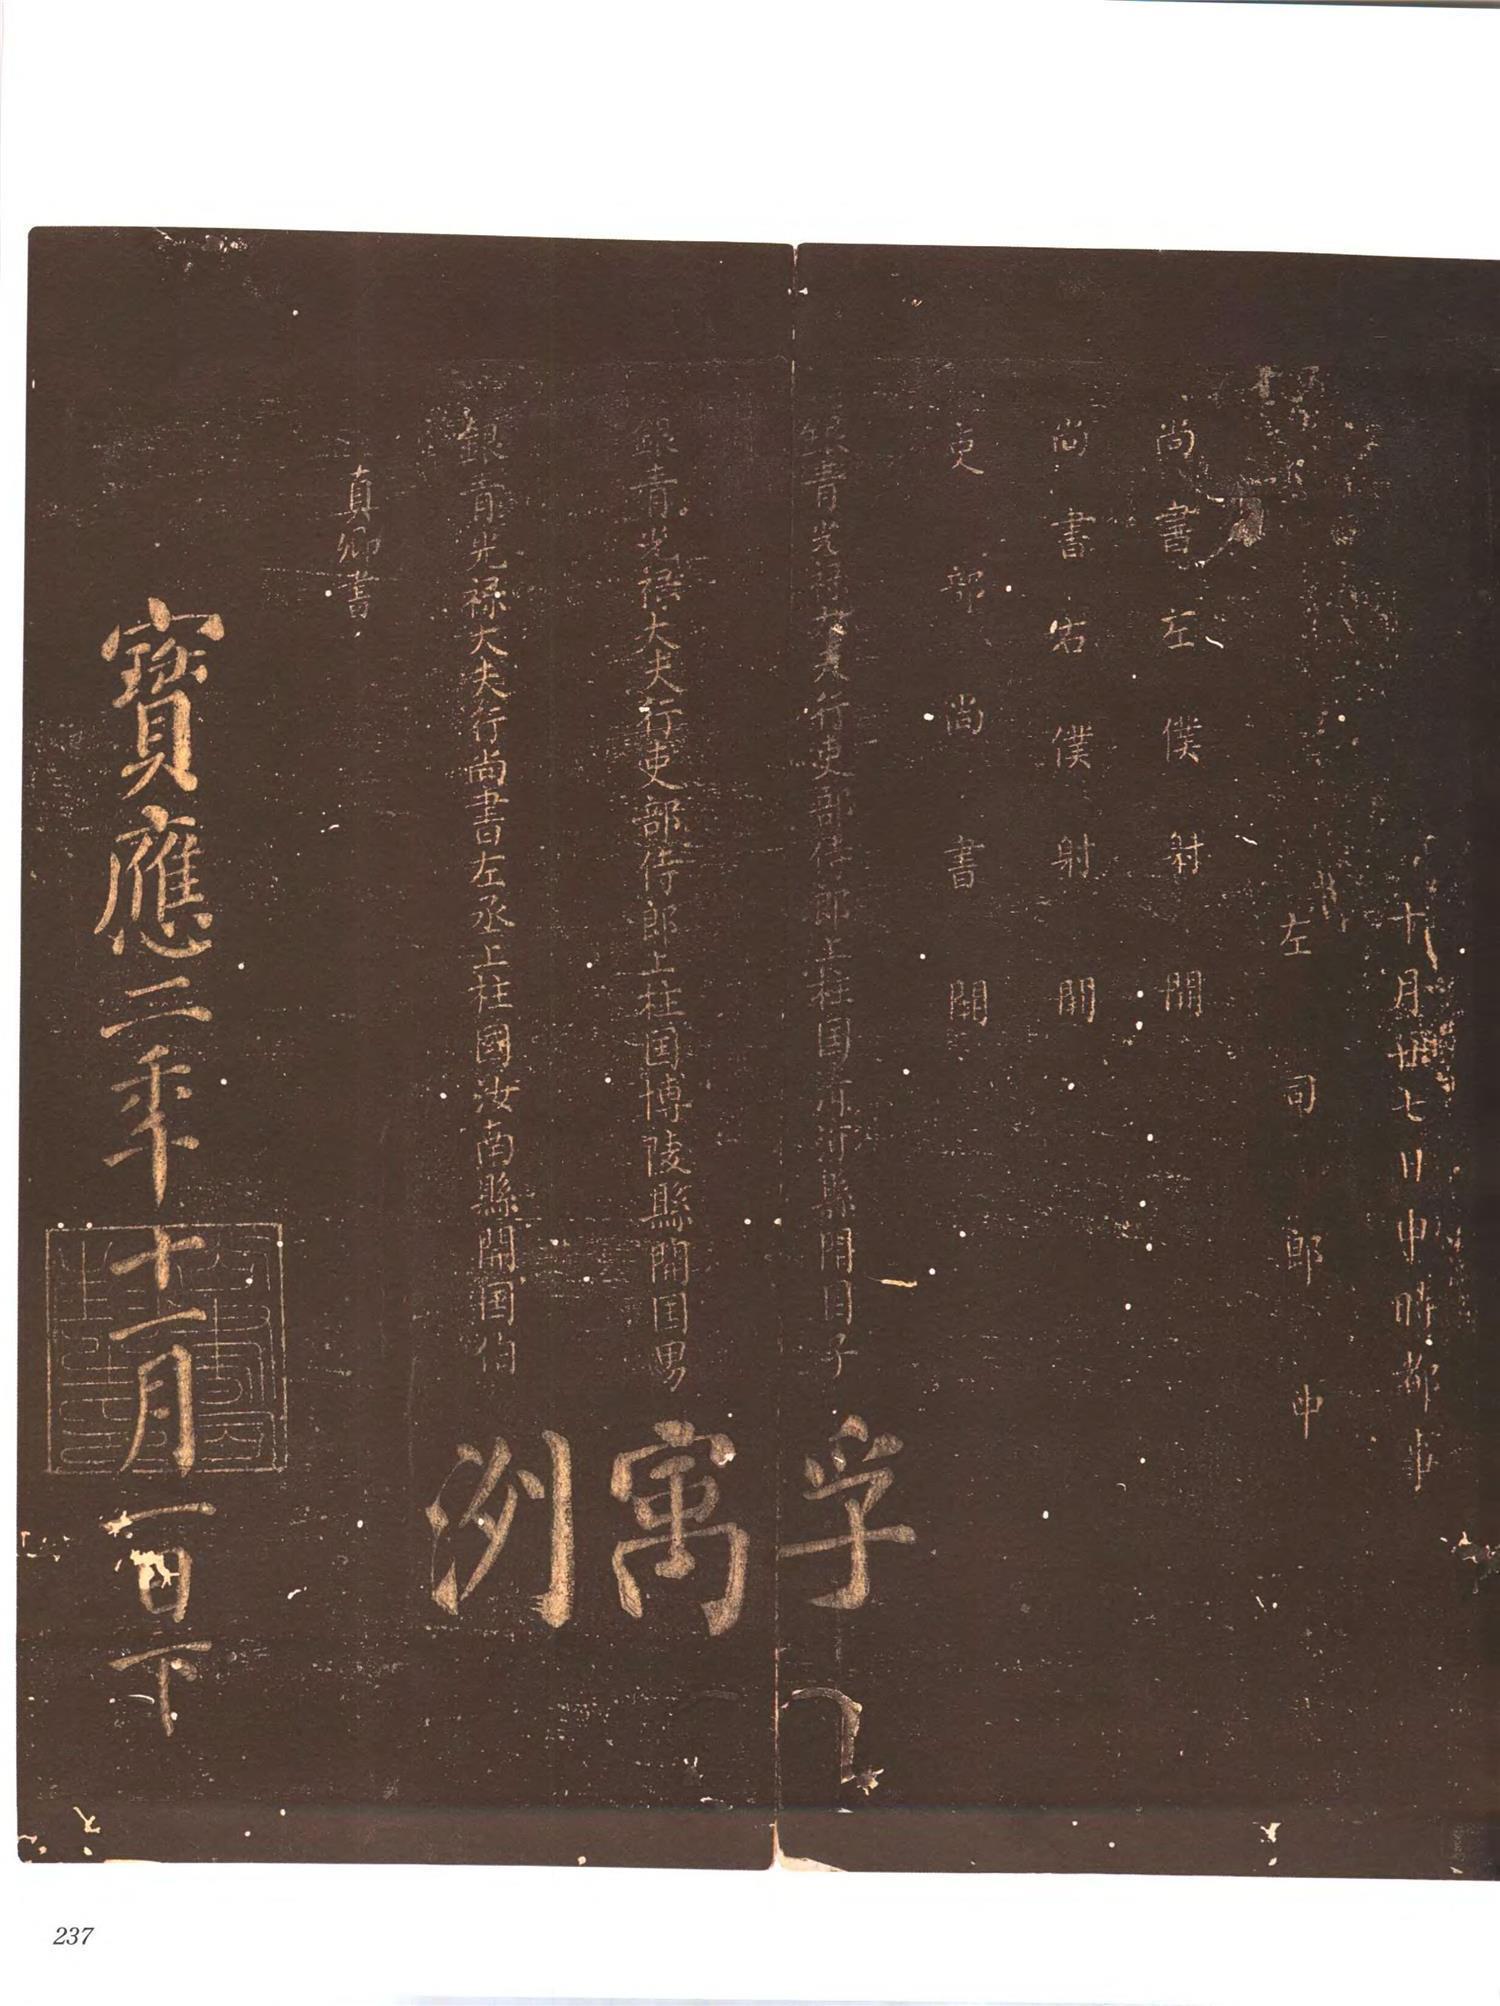 十月廿七日申時都事
左司郎中
尚書左僕射闕
尚書右僕射闕
吏部尚書闕
銀青光禄大夫行吏部侍郎上柱国 縣開国子 孚
銀青光禄大夫行吏部侍郎上柱国博陵縣開国男 寓
銀青光禄大夫行尚書左丞上柱國汝南縣開国伯 洌
真卿書
寶應二年十一月一日下
237